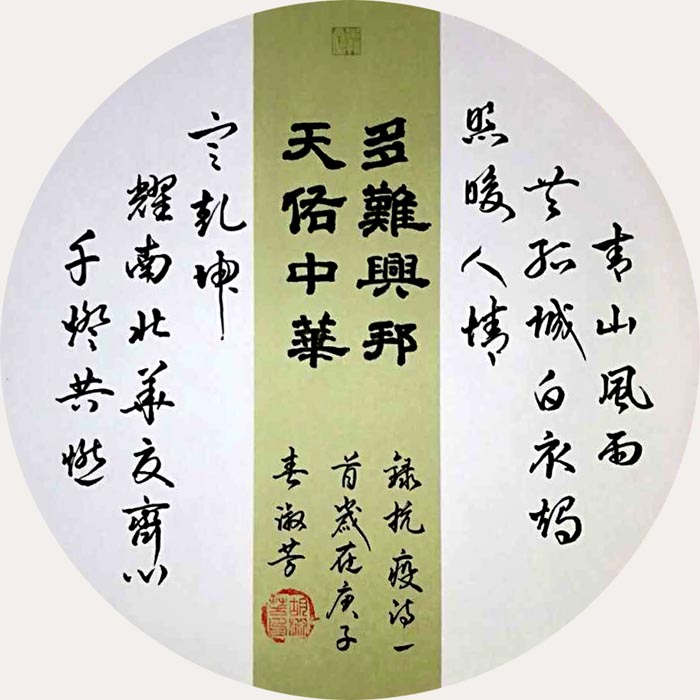 多難興邦
天佑中華
青山風雨
共孤城白衣燭
照暖人情
千燈共燃
耀南北華夏齊心
定乾坤
錄抗疫詩一
首歲在庚子
春淑芳